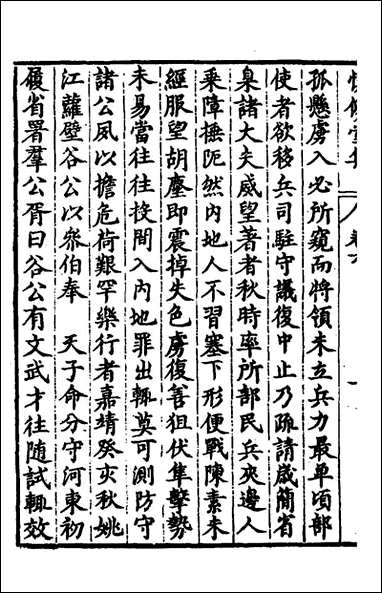 孤懸虜入必所窺而將領未立兵力最單頃部
使者欲移兵司駐守議復中止乃疏請歲簡省
臬諸大夫威望著者秋時率所部民兵夾邊人
乗障撫阨然内地人不習塞下形便戰陳素未
經服望胡塵即震掉失色虜復善狙伏隼擊勢
未易當往往投間入内地罪出輒莫可測防守
諸公夙以擔危荷艱罕樂行者嘉靖癸亥秋姚
江蘿壁谷公以叅伯奉　天子命分守河東初
履省署羣公胥曰谷公有文武才往随試輒效